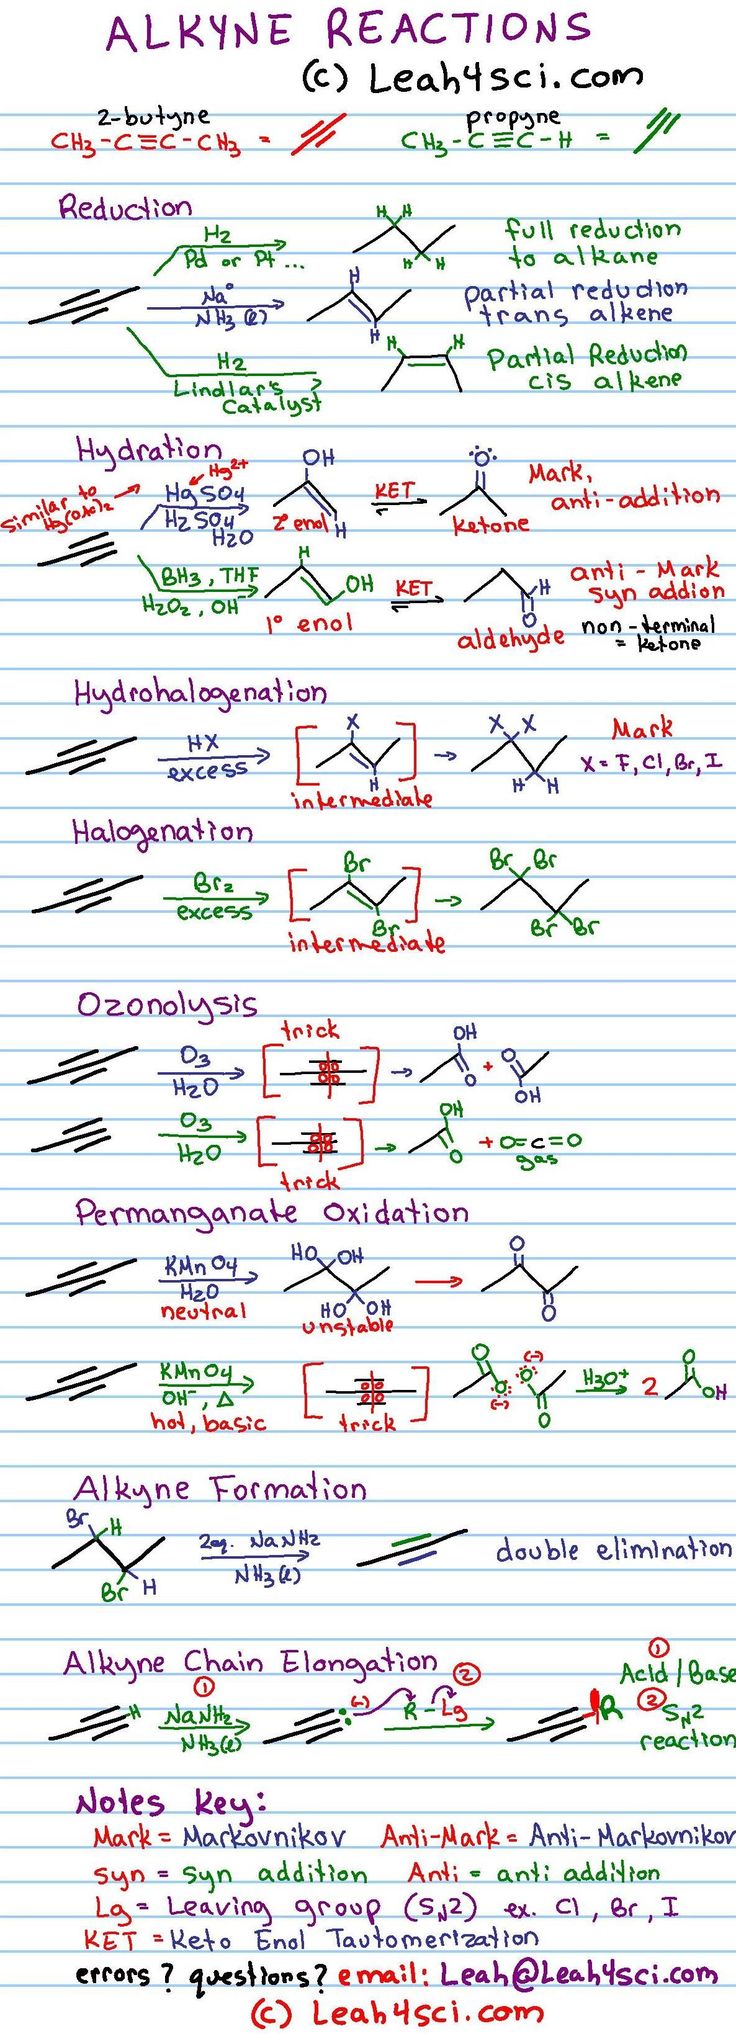 ALKYNE REACTIONS
(c) Leah4sci.com
2-butyne propyne
CH3-C≡C-CH3 = CH3-C≡C-H =
Reduction
H2
Pd or Pt...
H H
H H
full reduction
to alkane
Na°
NH3(l)
H
H
partial reduction
trans alkene
H2
Lindlar's
Catalyst
H H
Partial Reduction
cis alkene
Hydration
Similar to
Hg(OAc)2
Hg2+
HgSO4
H2SO4
H2O
OH
H
2° enol
KET
O
ketone
Mark,
anti-addition
BH3, THF
H2O2, OH-
H
OH
1° enol
KET
H
O
aldehyde
anti-Mark
syn addion
non-terminal
= ketone
Hydrohalogenation
HX
excess
X
H
intermediate
X X
H H
Mark
X = F, Cl, Br, I
Halogenation
Br2
excess
Br
Br
intermediate
Br Br
Br Br
Ozonolysis
trick
O3
H2O
OH
O
+
O
OH
O3
H2O
trick
OH
O
+ O=C=O
gas
Permanganate Oxidation
KMnO4
H2O
neutral
HO OH
HO OH
unstable
O
O
KMnO4
OH-, Δ
hot, basic
trick
O
O
(-)
(-)
O
O
H3O+
2
O
OH
Alkyne Formation
Br H
Br H
2eq. NaNH2
NH3(l)
double elimination
Alkyne Chain Elongation
H
1
NaNH2
NH3(l)
(-)
2
R-Lg
R
1
Acid/Base
2 SN2
reaction
Notes Key:
Mark = Markovnikov Anti-Mark = Anti-Markovnikov
syn = syn addition Anti = anti addition
Lg = Leaving group (SN2) ex. Cl, Br, I
KET = Keto Enol Tautomerization
errors? questions? email: Leah@Leah4sci.com
(c) Leah4sci.com